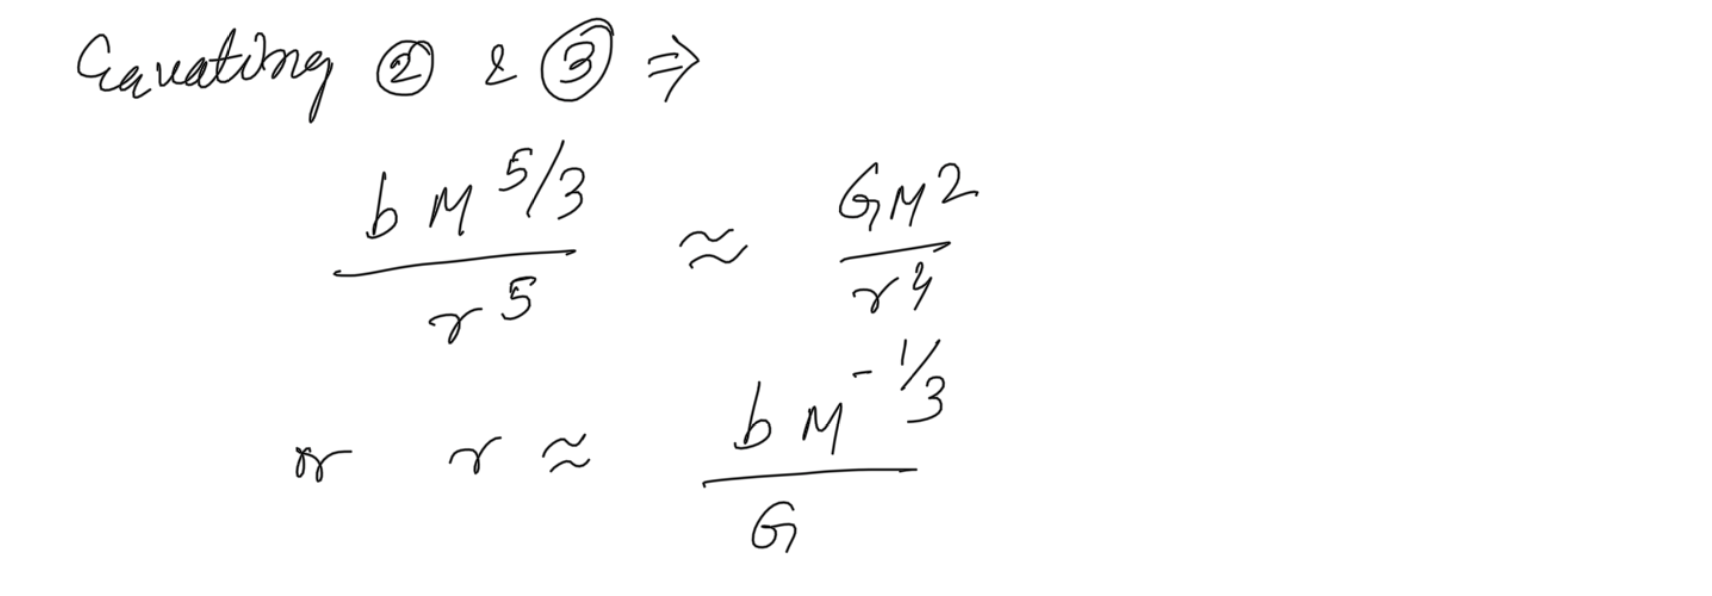 Equating ② & ③ ⇒
b M^5/3 / r^5 ≈ GM^2 / r^4
or r ≈ b M^-1/3 / G